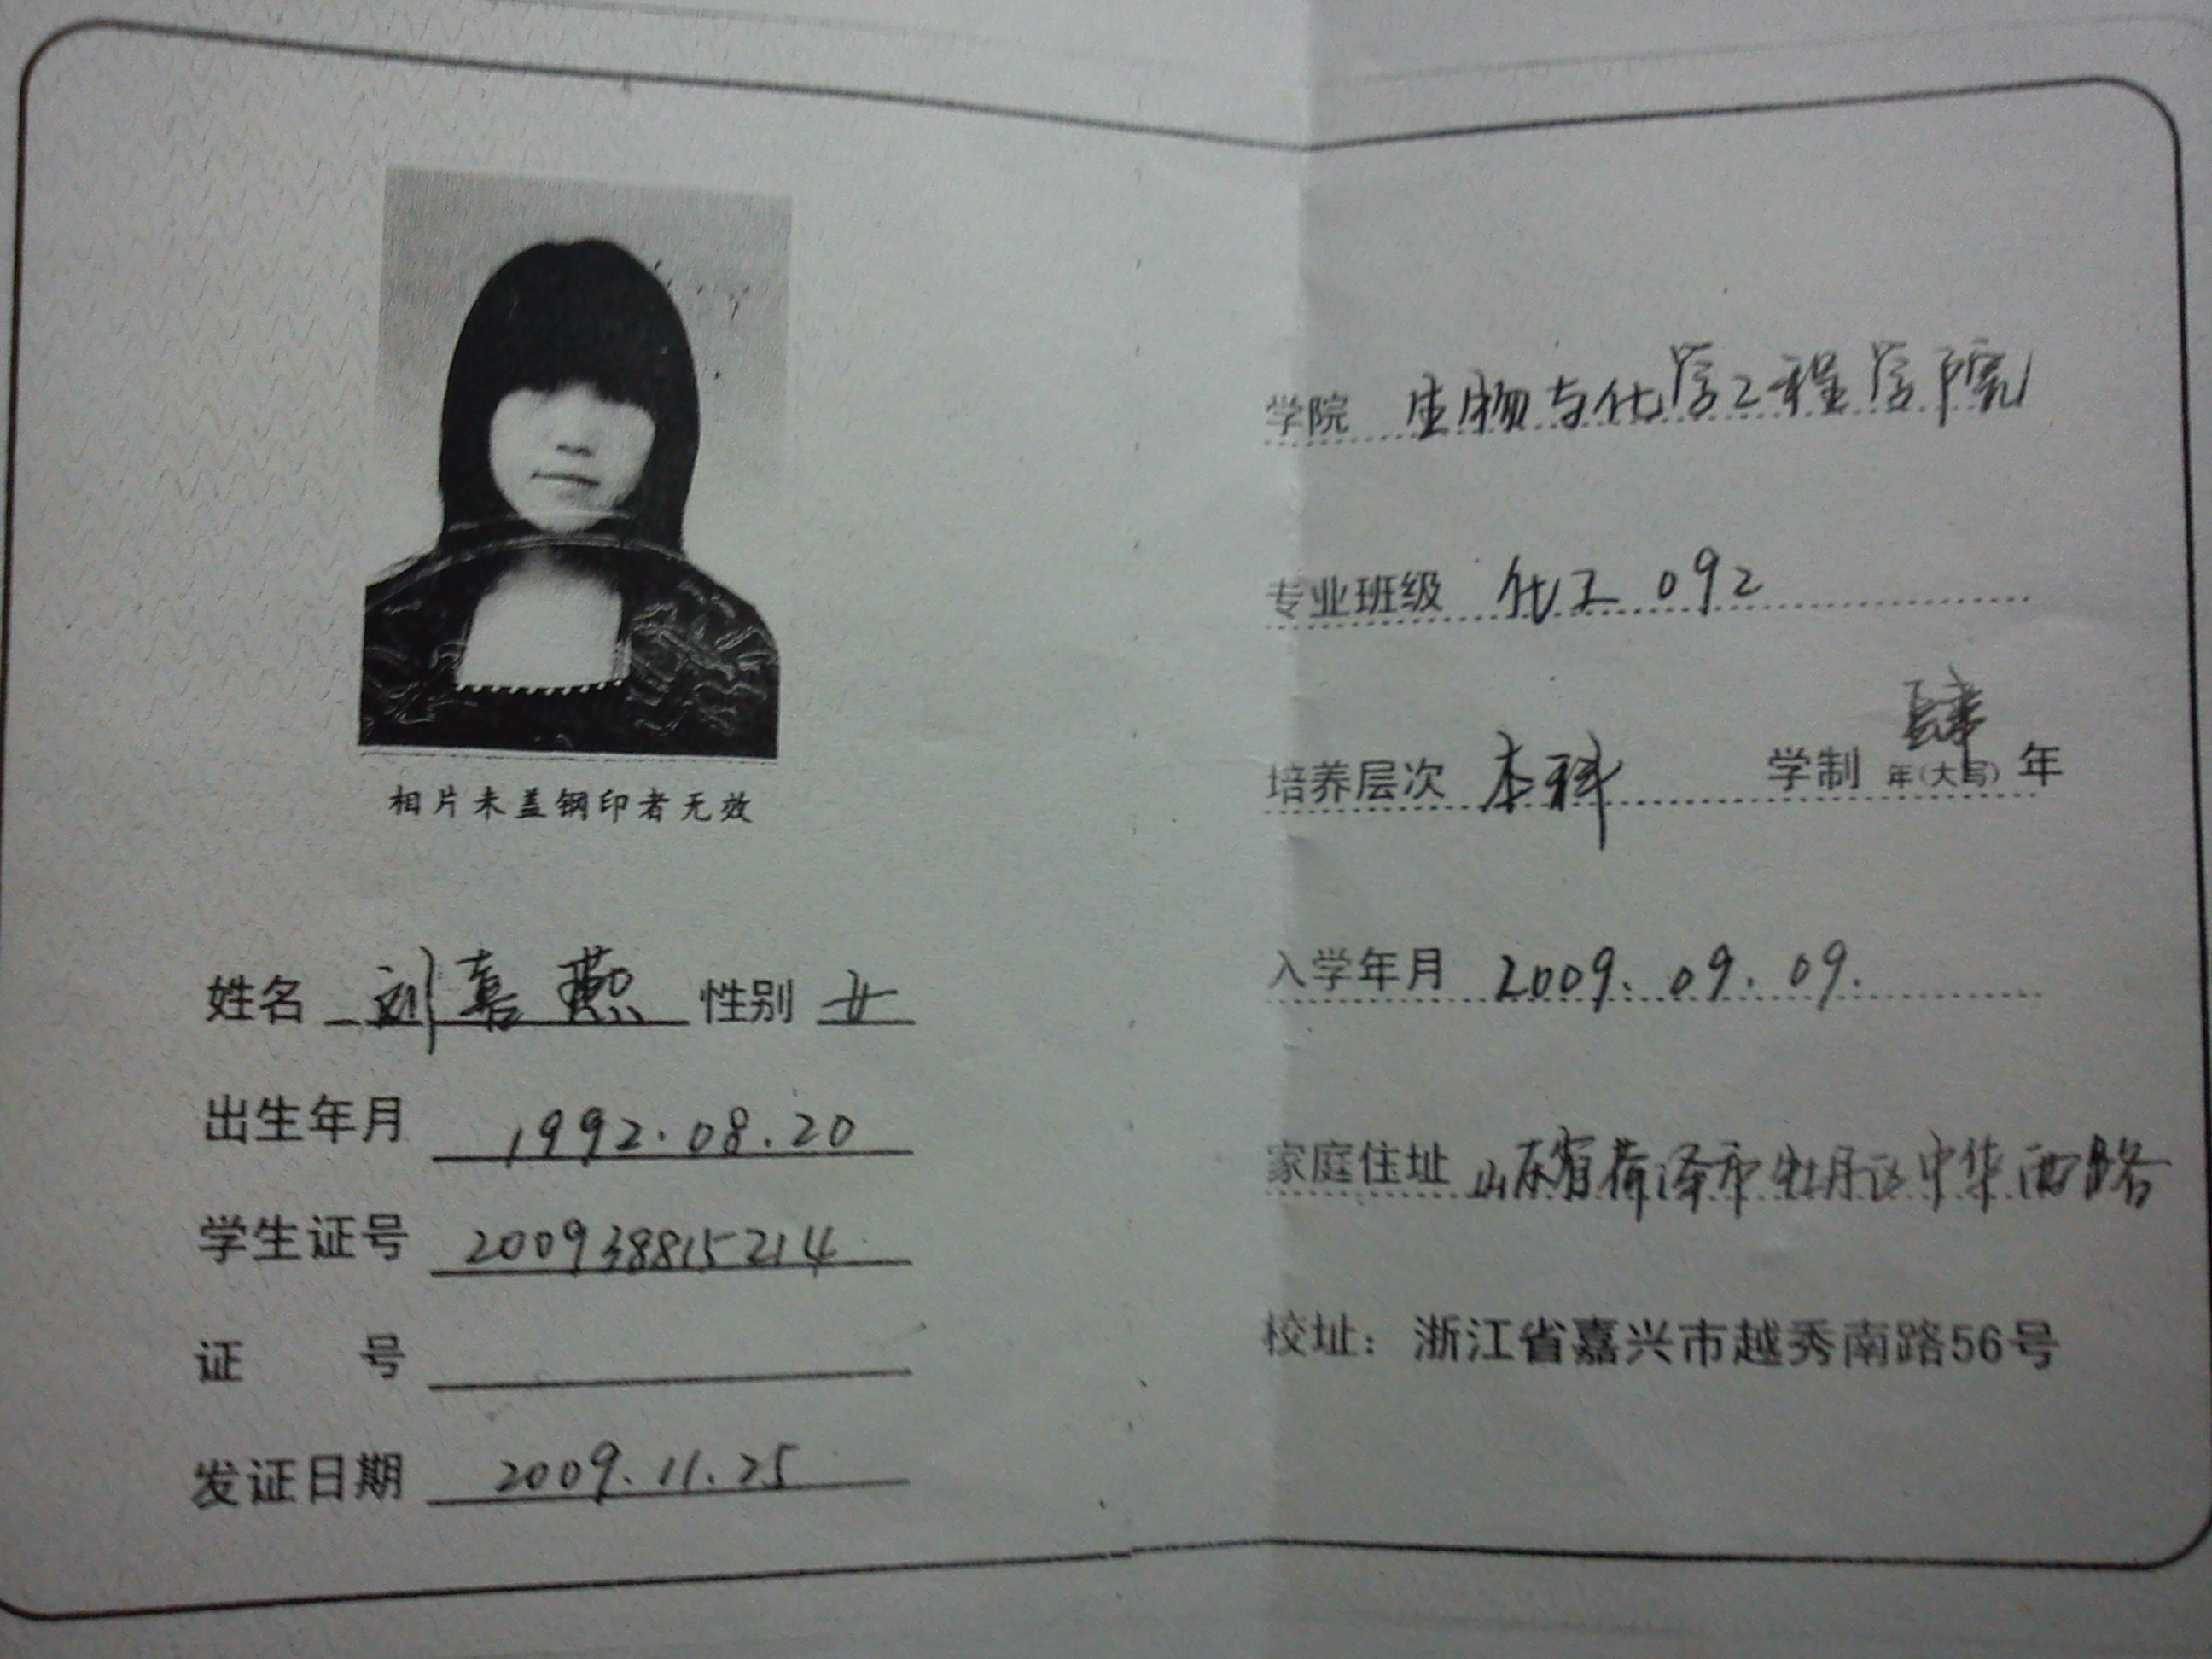 相片未盖钢印者无效
姓名 刘喜燕 性别 女
出生年月 1992.08.20
学生证号 200938815214
证 号
发证日期 2009.11.25
学院 生物与化学工程学院
专业班级 化工 092
培养层次 本科 学制 肆 年(大写) 年
入学年月 2009.09.09.
家庭住址 山东省荷泽市牡丹区中华西路
校址：浙江省嘉兴市越秀南路56号